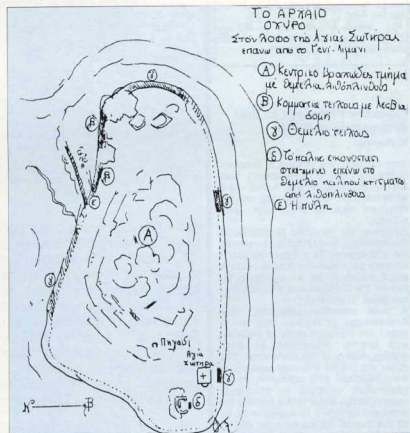 ΤΟ ΑΡΧΑΙΟ
ΟΧΥΡΟ
Στον λόφο της Αγίας Σωτήρας
επάνω από το Γενί-λιμάνι
Α Κεντρικό βραχώδες τμήμα
με θεμέλια, λιθόπλινθους
Β Κομμάτια τείχους με λέσβια
δομή
γ Θεμέλιο τείχους
δ Το παλιό εικονοστάσι
φτιαγμένο επάνω στο
θεμέλιο παληού κτίσματος
από λιθόπλινθους
ε Η πύλη
γ
Β
Β
ε
γ
Α
γ
Πηγάδι
Αγία
Σωτήρα
γ
δ
Ν Β